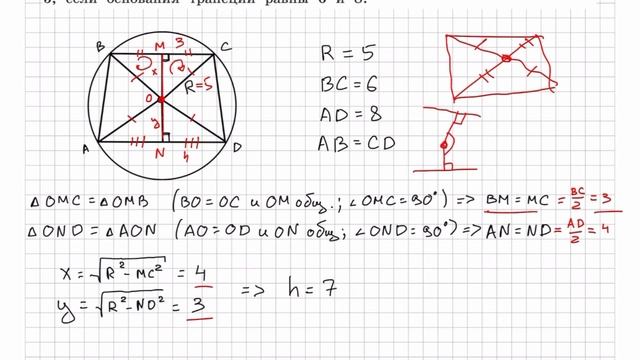 5, если основания трапеции равны 6 и 8.
B M 3 C
x
R=5
O
y
A N 4 D
R = 5
BC = 6
AD = 8
AB = CD
△OMC = △OMB (BO = OC и OM общ.; ∠OMC = 90°) => BM = MC = BC/2 = 3
△OND = △AON (AO = OD и ON общ; ∠OND = 90°) => AN = ND = AD/2 = 4
x = √R² - MC² = 4
y = √R² - ND² = 3
=> h = 7